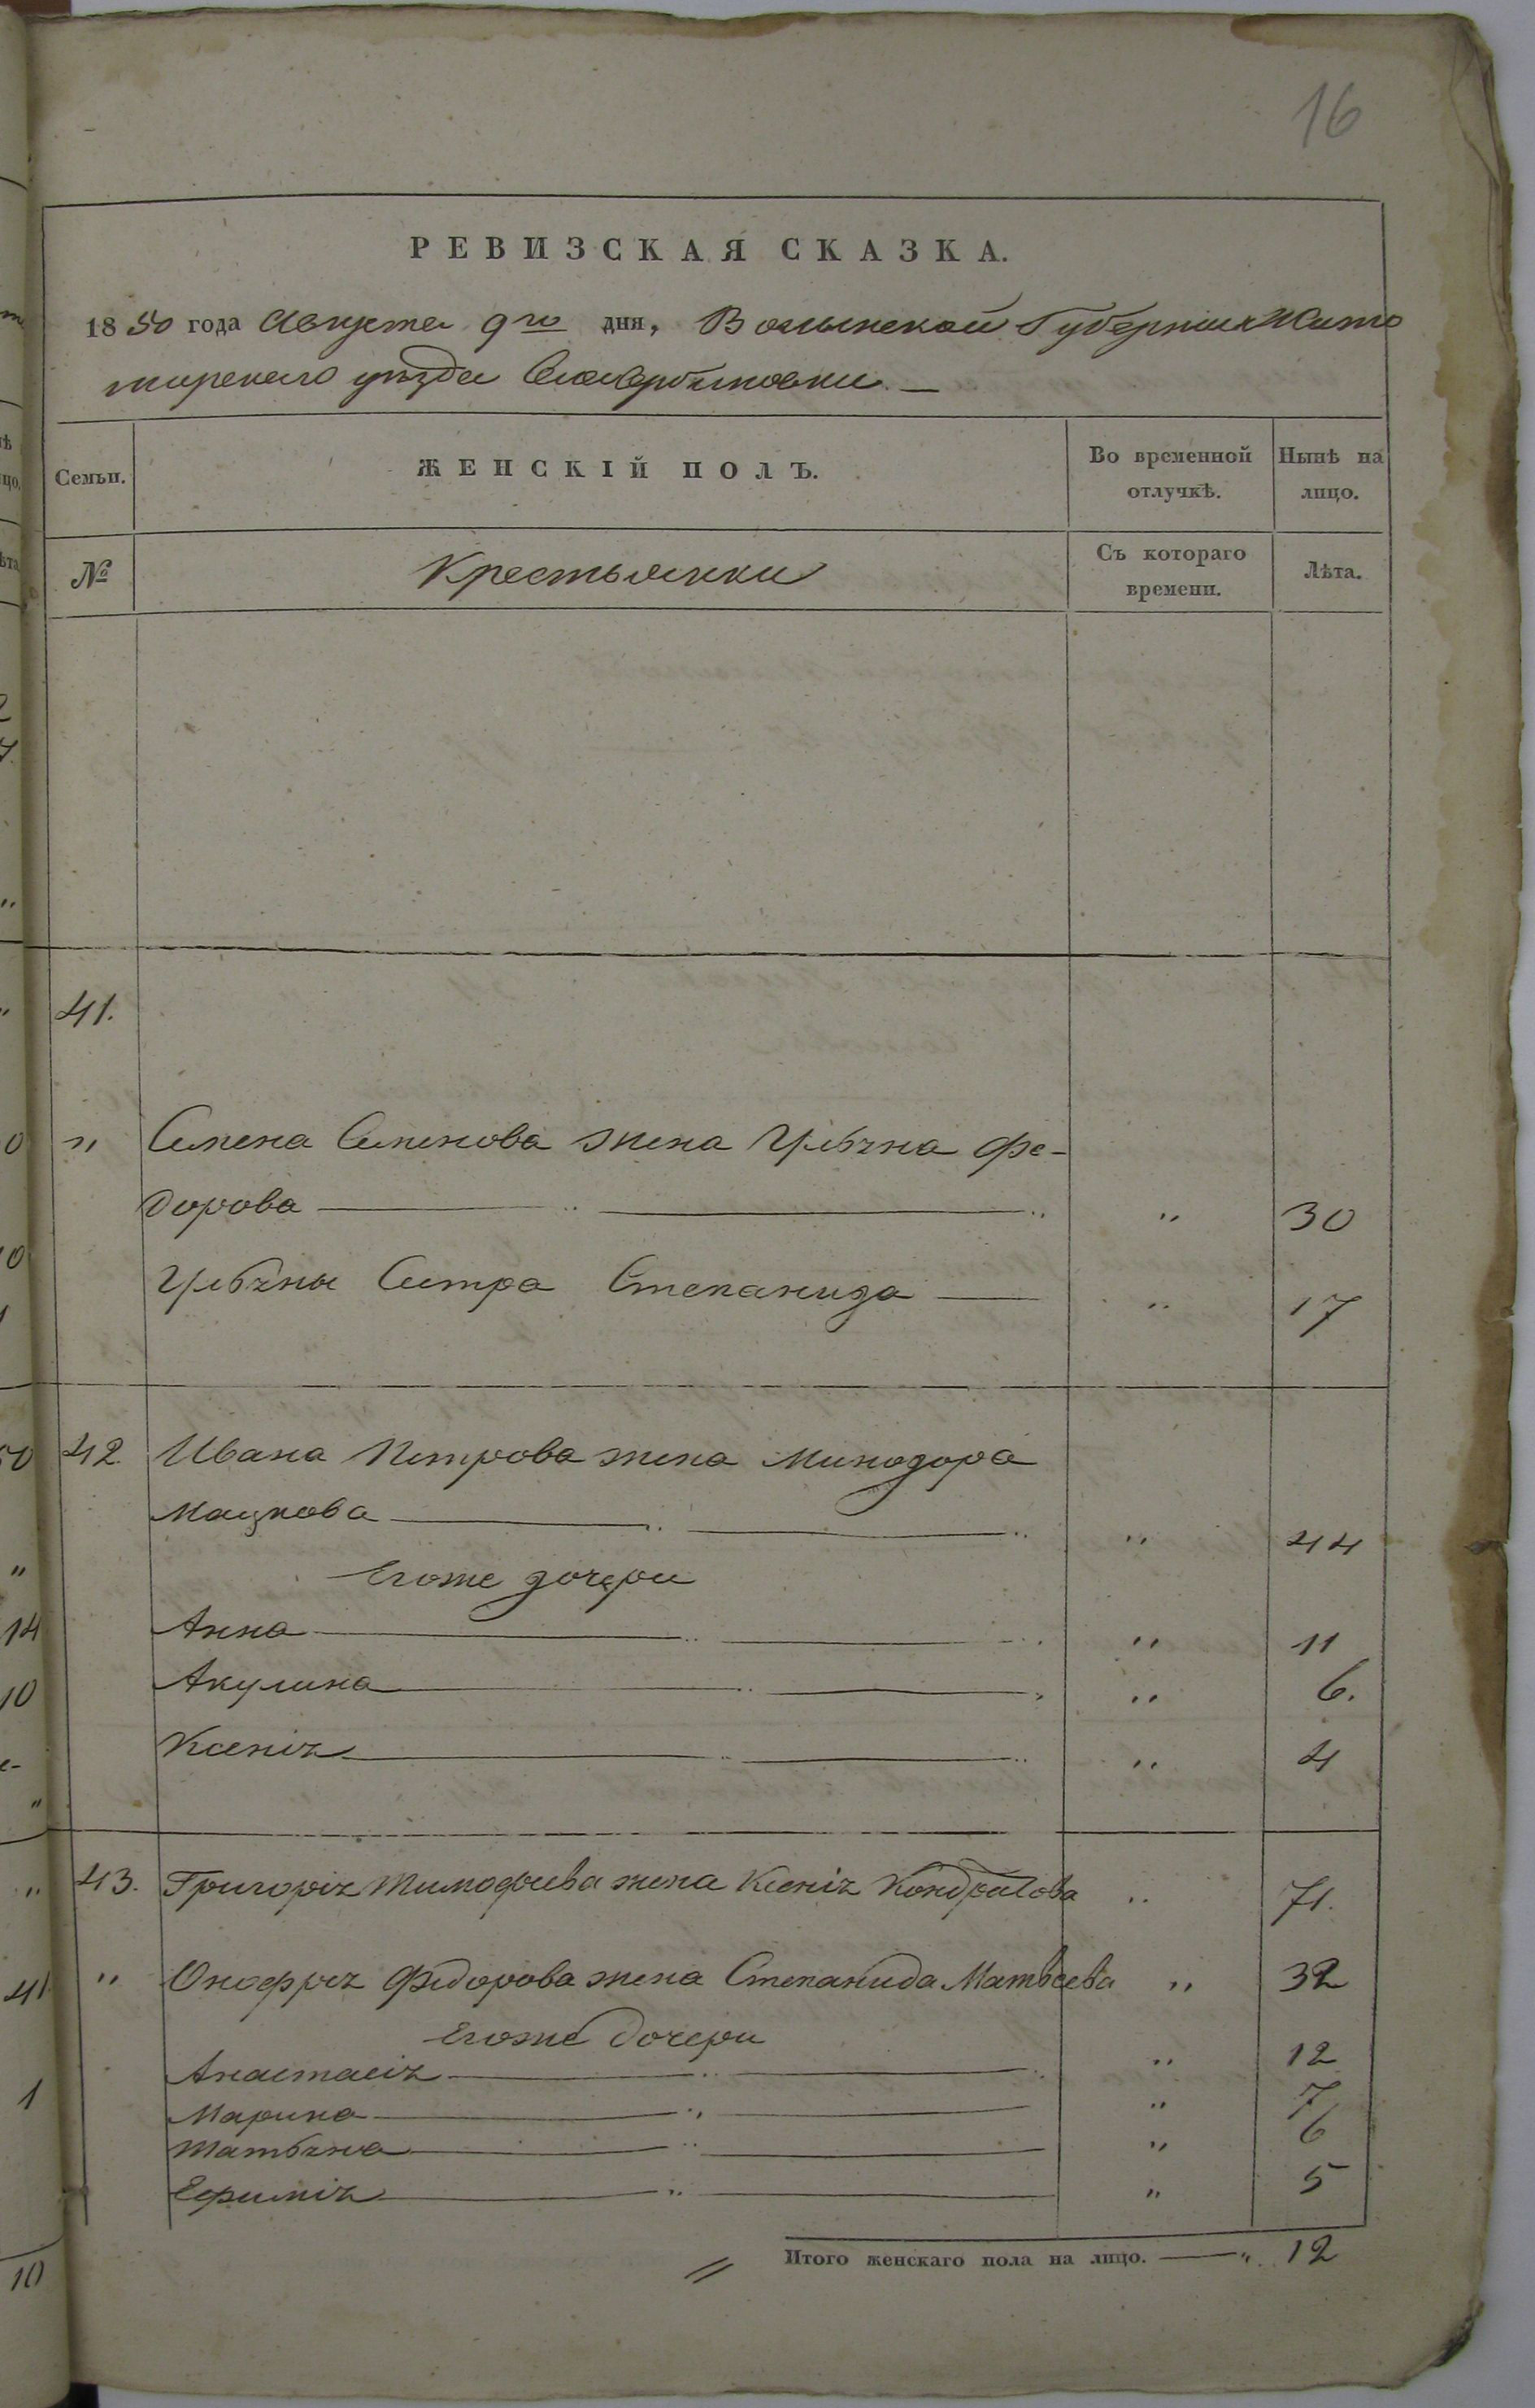 16
РЕВИЗСКАЯ СКАЗКА.
1850 года Августа 9го дня, Волынской Губернии Жито
мирскаго уѣзда
Семьи.
ЖЕНСКІЙ ПОЛЪ.
Во временной
отлучкѣ.
Нынѣ на
лицо.
№
Крестьянки
Съ котораго
времени.
Лѣта.
41.
" Семена Семенова жена Ульяна Фе-
дорова " 30
Ульяны Сестра Степанида " 17
42. Ивана Петрова жена Минодора
Мацкова " 44
Егоже дочери
Анна " 11
Акулина " 6.
Ксенія " 4
43. Григорія Тимофѣева жена Ксенія Кондратова " 71.
" Онофрія Федорова жена Степанида Матвѣева " 32
Егоже дочери
Анастасія " 12
Марина " 7
Татьяна " 6
Ефимія " 5
Итого женскаго пола на лицо. — " 12